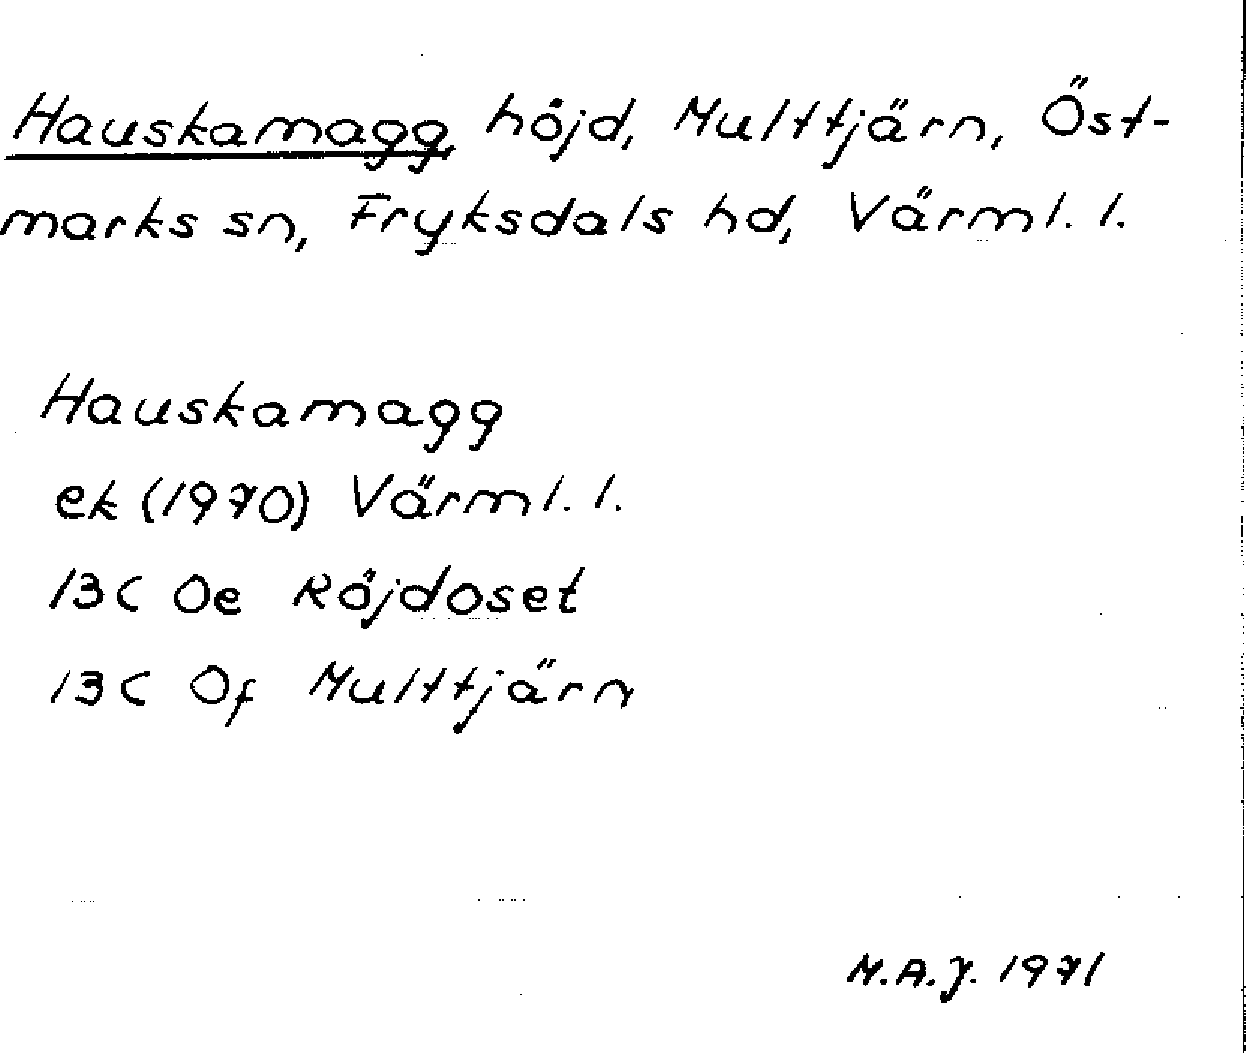 Hauskamagg, höjd, Multtjärn, Öst-
marks sn, Fryksdals hd, Värml. l.
Hauskamagg
ek (1970) Värml. l.
13C 0e Röjdoset
13C 0f Multtjärn
M.A.J. 1971